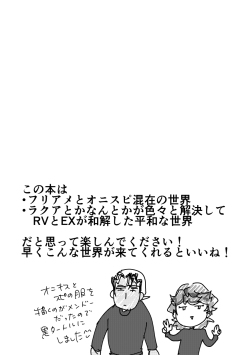 この本は
・フリアメとオニスピ混在の世界
・ラクアとかなんとかが色々と解決して
RVとEXが和解した平和な世界
だと思って楽しんでください！
早くこんな世界が来てくれるといいね！
オニキスと
スピの服を
描くのがメンドー
だったので
黒タートルに
しました